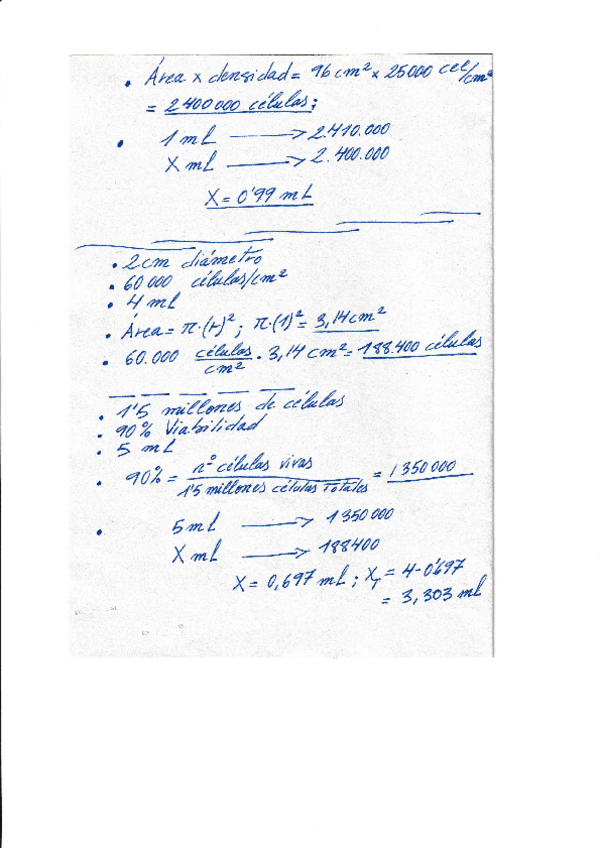 • Área x densidad = 96 cm² x 25000 cel/cm²
= 2400000 células;
• 1 mL → 2.410.000
X mL → 2.400.000
X = 0'99 mL
• 2cm diámetro
• 60000 células/cm²
• 4 mL
• Área = π·(r)²; π·(1)² = 3,14 cm²
• 60.000 células/cm² · 3,14 cm² = 188.400 células
• 1'5 millones de células
• 90% Viabilidad
• 5 mL
• 90% = nº células vivas / 1'5 millones células totales = 1350000
• 5 mL → 1350000
X mL → 188400
X = 0,697 mL; X_T = 4-0'697
= 3,303 ml